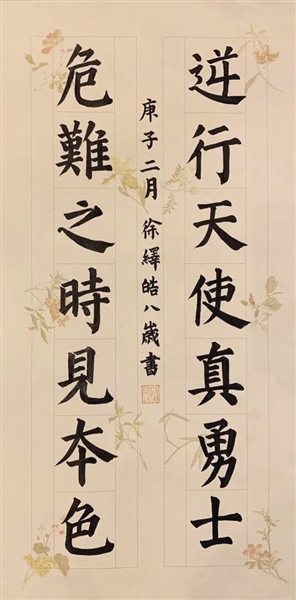 逆行天使真勇士
危難之時見本色
庚子二月徐繹皓八歲書